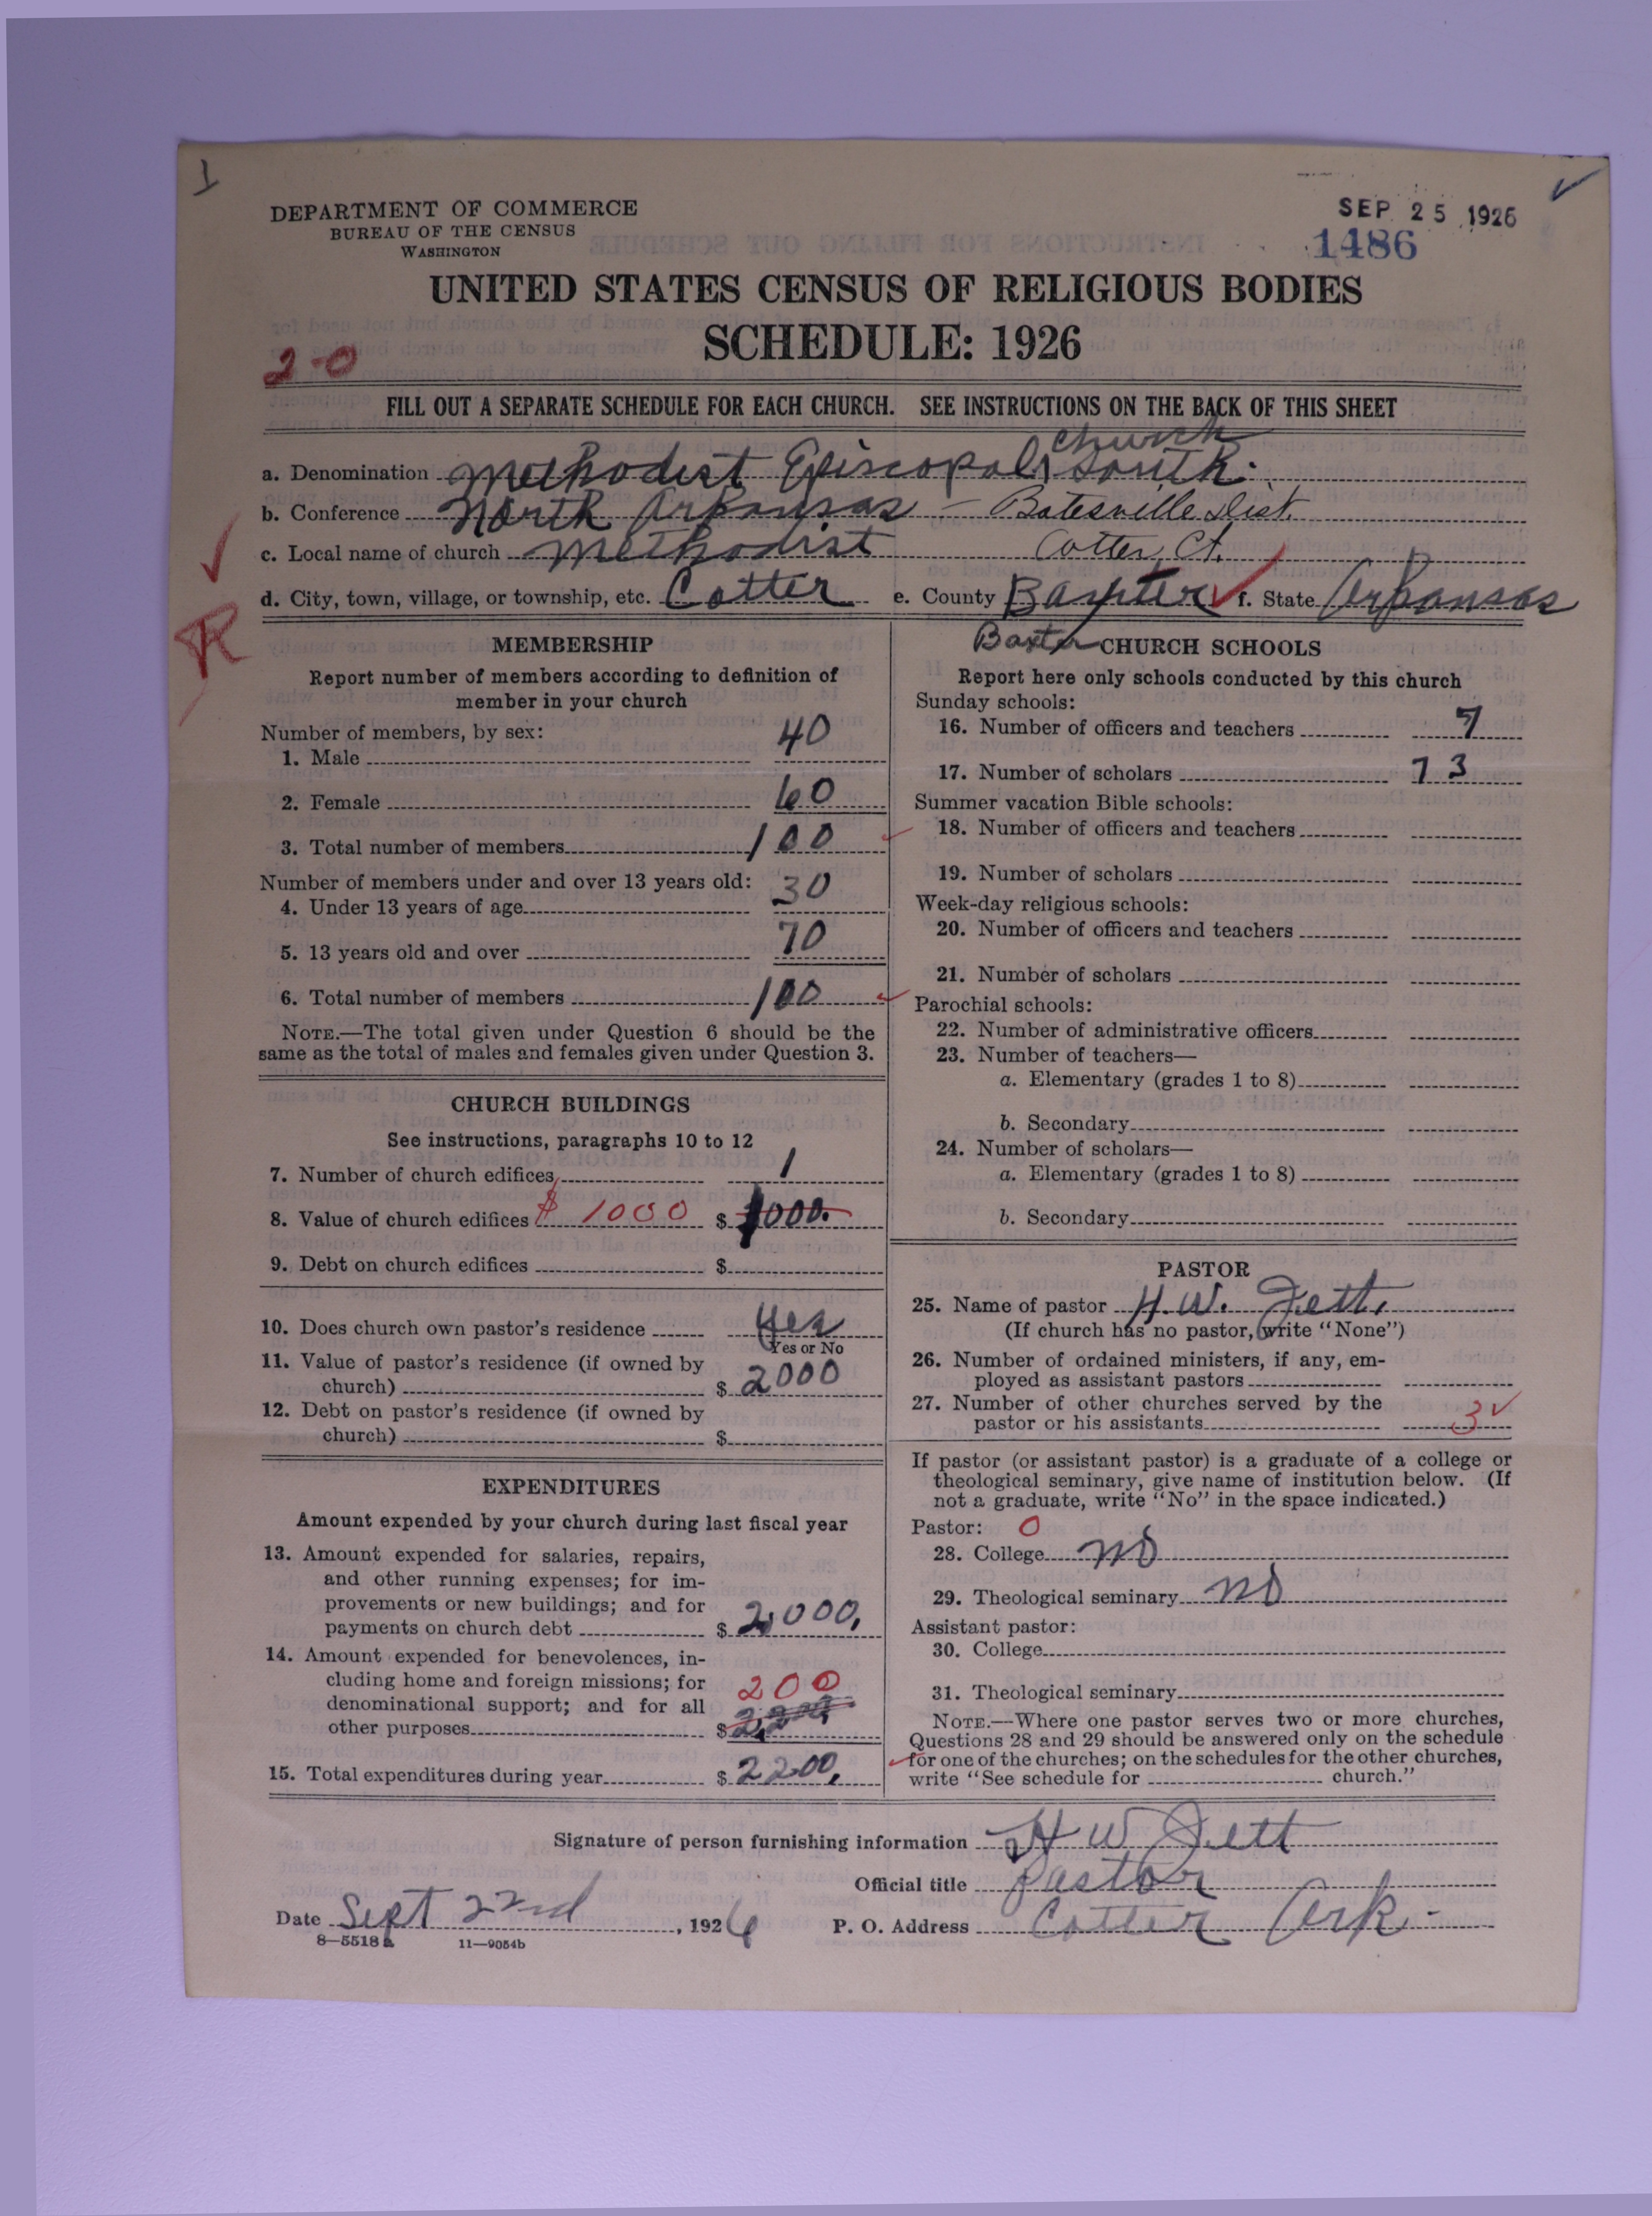 1
DEPARTMENT OF COMMERCE
BUREAU OF THE CENSUS
WASHINGTON
SEP 25 1926
1486
UNITED STATES CENSUS OF RELIGIOUS BODIES
SCHEDULE: 1926
2-0
FILL OUT A SEPARATE SCHEDULE FOR EACH CHURCH. SEE INSTRUCTIONS ON THE BACK OF THIS SHEET
a. Denomination Methodist Episcopal Church South.
b. Conference North Arkansas - Batesville Dist.
c. Local name of church Methodist Cotter, Ct.
d. City, town, village, or township, etc. Cotter e. County Baxter f. State Arkansas
R
Baxter
MEMBERSHIP
Report number of members according to definition of
member in your church
Number of members, by sex:
1. Male 40
2. Female 60
3. Total number of members 100
Number of members under and over 13 years old:
4. Under 13 years of age 30
5. 13 years old and over 70
6. Total number of members 100
NOTE.—The total given under Question 6 should be the
same as the total of males and females given under Question 3.
CHURCH BUILDINGS
See instructions, paragraphs 10 to 12
7. Number of church edifices 1
8. Value of church edifices $ 1000 $ 1000.
9. Debt on church edifices $
10. Does church own pastor's residence Yes
Yes or No
11. Value of pastor's residence (if owned by
church) $ 2000
12. Debt on pastor's residence (if owned by
church) $
EXPENDITURES
Amount expended by your church during last fiscal year
13. Amount expended for salaries, repairs,
and other running expenses; for im-
provements or new buildings; and for
payments on church debt $ 2,000,
14. Amount expended for benevolences, in-
cluding home and foreign missions; for
denominational support; and for all 200
other purposes $
15. Total expenditures during year $ 2200,
CHURCH SCHOOLS
Report here only schools conducted by this church
Sunday schools:
16. Number of officers and teachers 7
17. Number of scholars 73
Summer vacation Bible schools:
18. Number of officers and teachers
19. Number of scholars
Week-day religious schools:
20. Number of officers and teachers
21. Number of scholars
Parochial schools:
22. Number of administrative officers
23. Number of teachers—
a. Elementary (grades 1 to 8)
b. Secondary
24. Number of scholars—
a. Elementary (grades 1 to 8)
b. Secondary
PASTOR
25. Name of pastor H. W. Jett,
(If church has no pastor, write "None")
26. Number of ordained ministers, if any, em-
ployed as assistant pastors
27. Number of other churches served by the
pastor or his assistants 3
If pastor (or assistant pastor) is a graduate of a college or
theological seminary, give name of institution below. (If
not a graduate, write "No" in the space indicated.)
Pastor: 0
28. College No
29. Theological seminary No
Assistant pastor:
30. College
31. Theological seminary
NOTE.—Where one pastor serves two or more churches,
Questions 28 and 29 should be answered only on the schedule
for one of the churches; on the schedules for the other churches,
write "See schedule for church."
Signature of person furnishing information H W Jett
Official title Pastor
Date Sept 22nd, 1926 P. O. Address Cotter Ark.
8—5518a 11—9054b